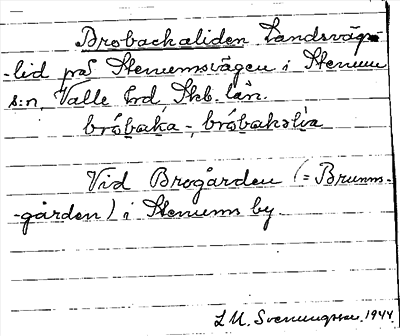 Brobackaliden Landsvägs-
-lid på Stenumsvägen i Stenum
s:n, Valle hrd, Skb. län.
bróbaka-, bróbakəlía
Vid Brogården (=Brunns-
-gården) i Stenums by.
L M. Svenungsson. 1944.